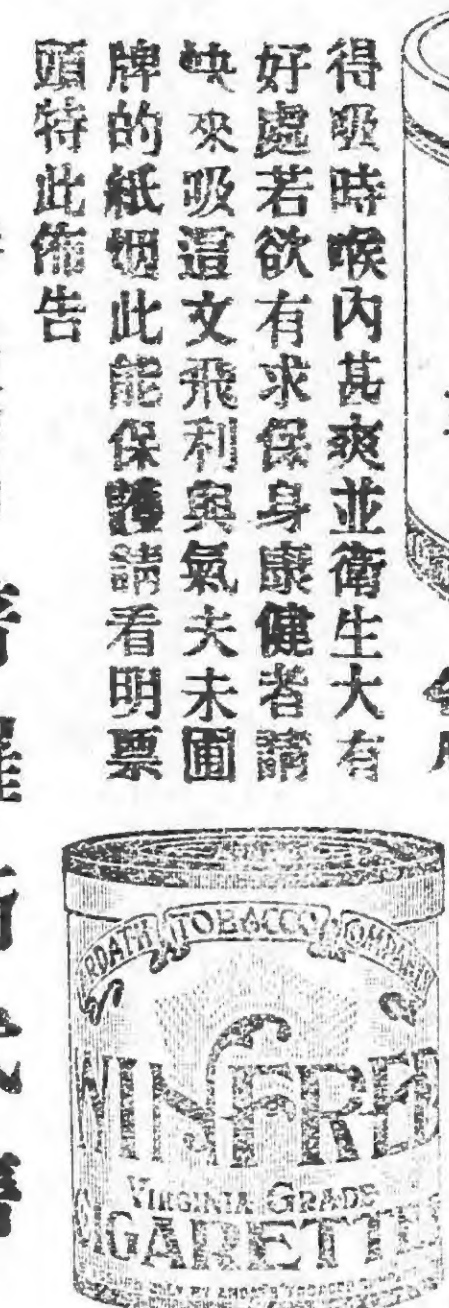 得吸時喉内甚爽並衛生大有
好處若欲有求保身康健者請
快來吸這文飛利與氣夫未圃
牌的紙烟此能保護請看明票
頭特此佈告
ARDATH TOBACCO COMPANY
WINFRED
VIRGINIA GRADE
CIGARETTES